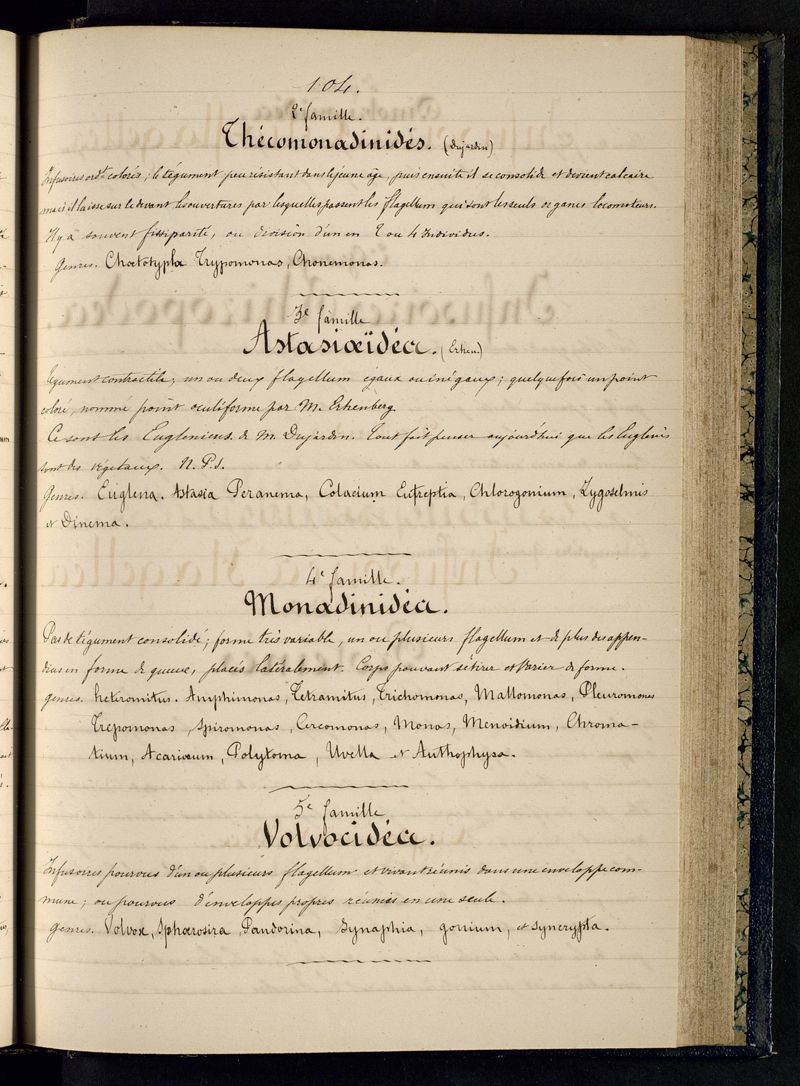 104.
2e famille.
Thécomonadinidés. (Dujardin)
Infusoires ordt colorés; le tégument peu résistant dans le jeune âge, puis ensuite il se consolide et devient calcaire
mais il laisse sur le devant les ouvertures par lesquelles passent les flagellum qui sont les seuls organes locomoteurs.
Il y a souvent fissiparité, ou division d'un en 2 ou 4 individus.
Genres. Chœtotypla Trypomonas, Chonemonas.
3e famille
Astasiaïdéa. (Erhen)
Tégument contractile, un ou deux flagellum égaux ou inégaux; quelquefois un point
coloré, nommé point oculiforme par M. Erhenberg.
Ce sont les Eugléniens de M. Dujardin. Tout fait penser aujourd'hui que les Euglenis
sont des végétaux. N. P. J.
Genres. Euglena. Astasia Peranema, Colacium Eutreptia, Chlorogonium, Zygoselmis
et Dinema.
4e famille.
Monadinidéa.
Pas de tégument consolidé; forme très variable, un ou plusieurs flagellum et de plus des appen-
dices en forme de queue, placés latéralement. Corps pouvant s'étirer et varier de forme.
genres. heteromitus. Amphimonas, Tetramitus, Trichomonas, Mallomonas, Pleuromonas
Trepomonas, Spiromonas, Cercomonas, Monas, Menoidium, Chroma-
tium, Acariœum, Polytoma, Uvella et Anthophysa.
5e famille
Volvocidéa.
Infusoires pourvus d'un ou plusieurs flagellum et vivant réunis dans une enveloppe com-
mune; ou pourvus d'enveloppes propres réunies en une seule.
Genres. Volvox, Sphœrosira Pandorina, Synaphia, gonium, et Syncrypta.